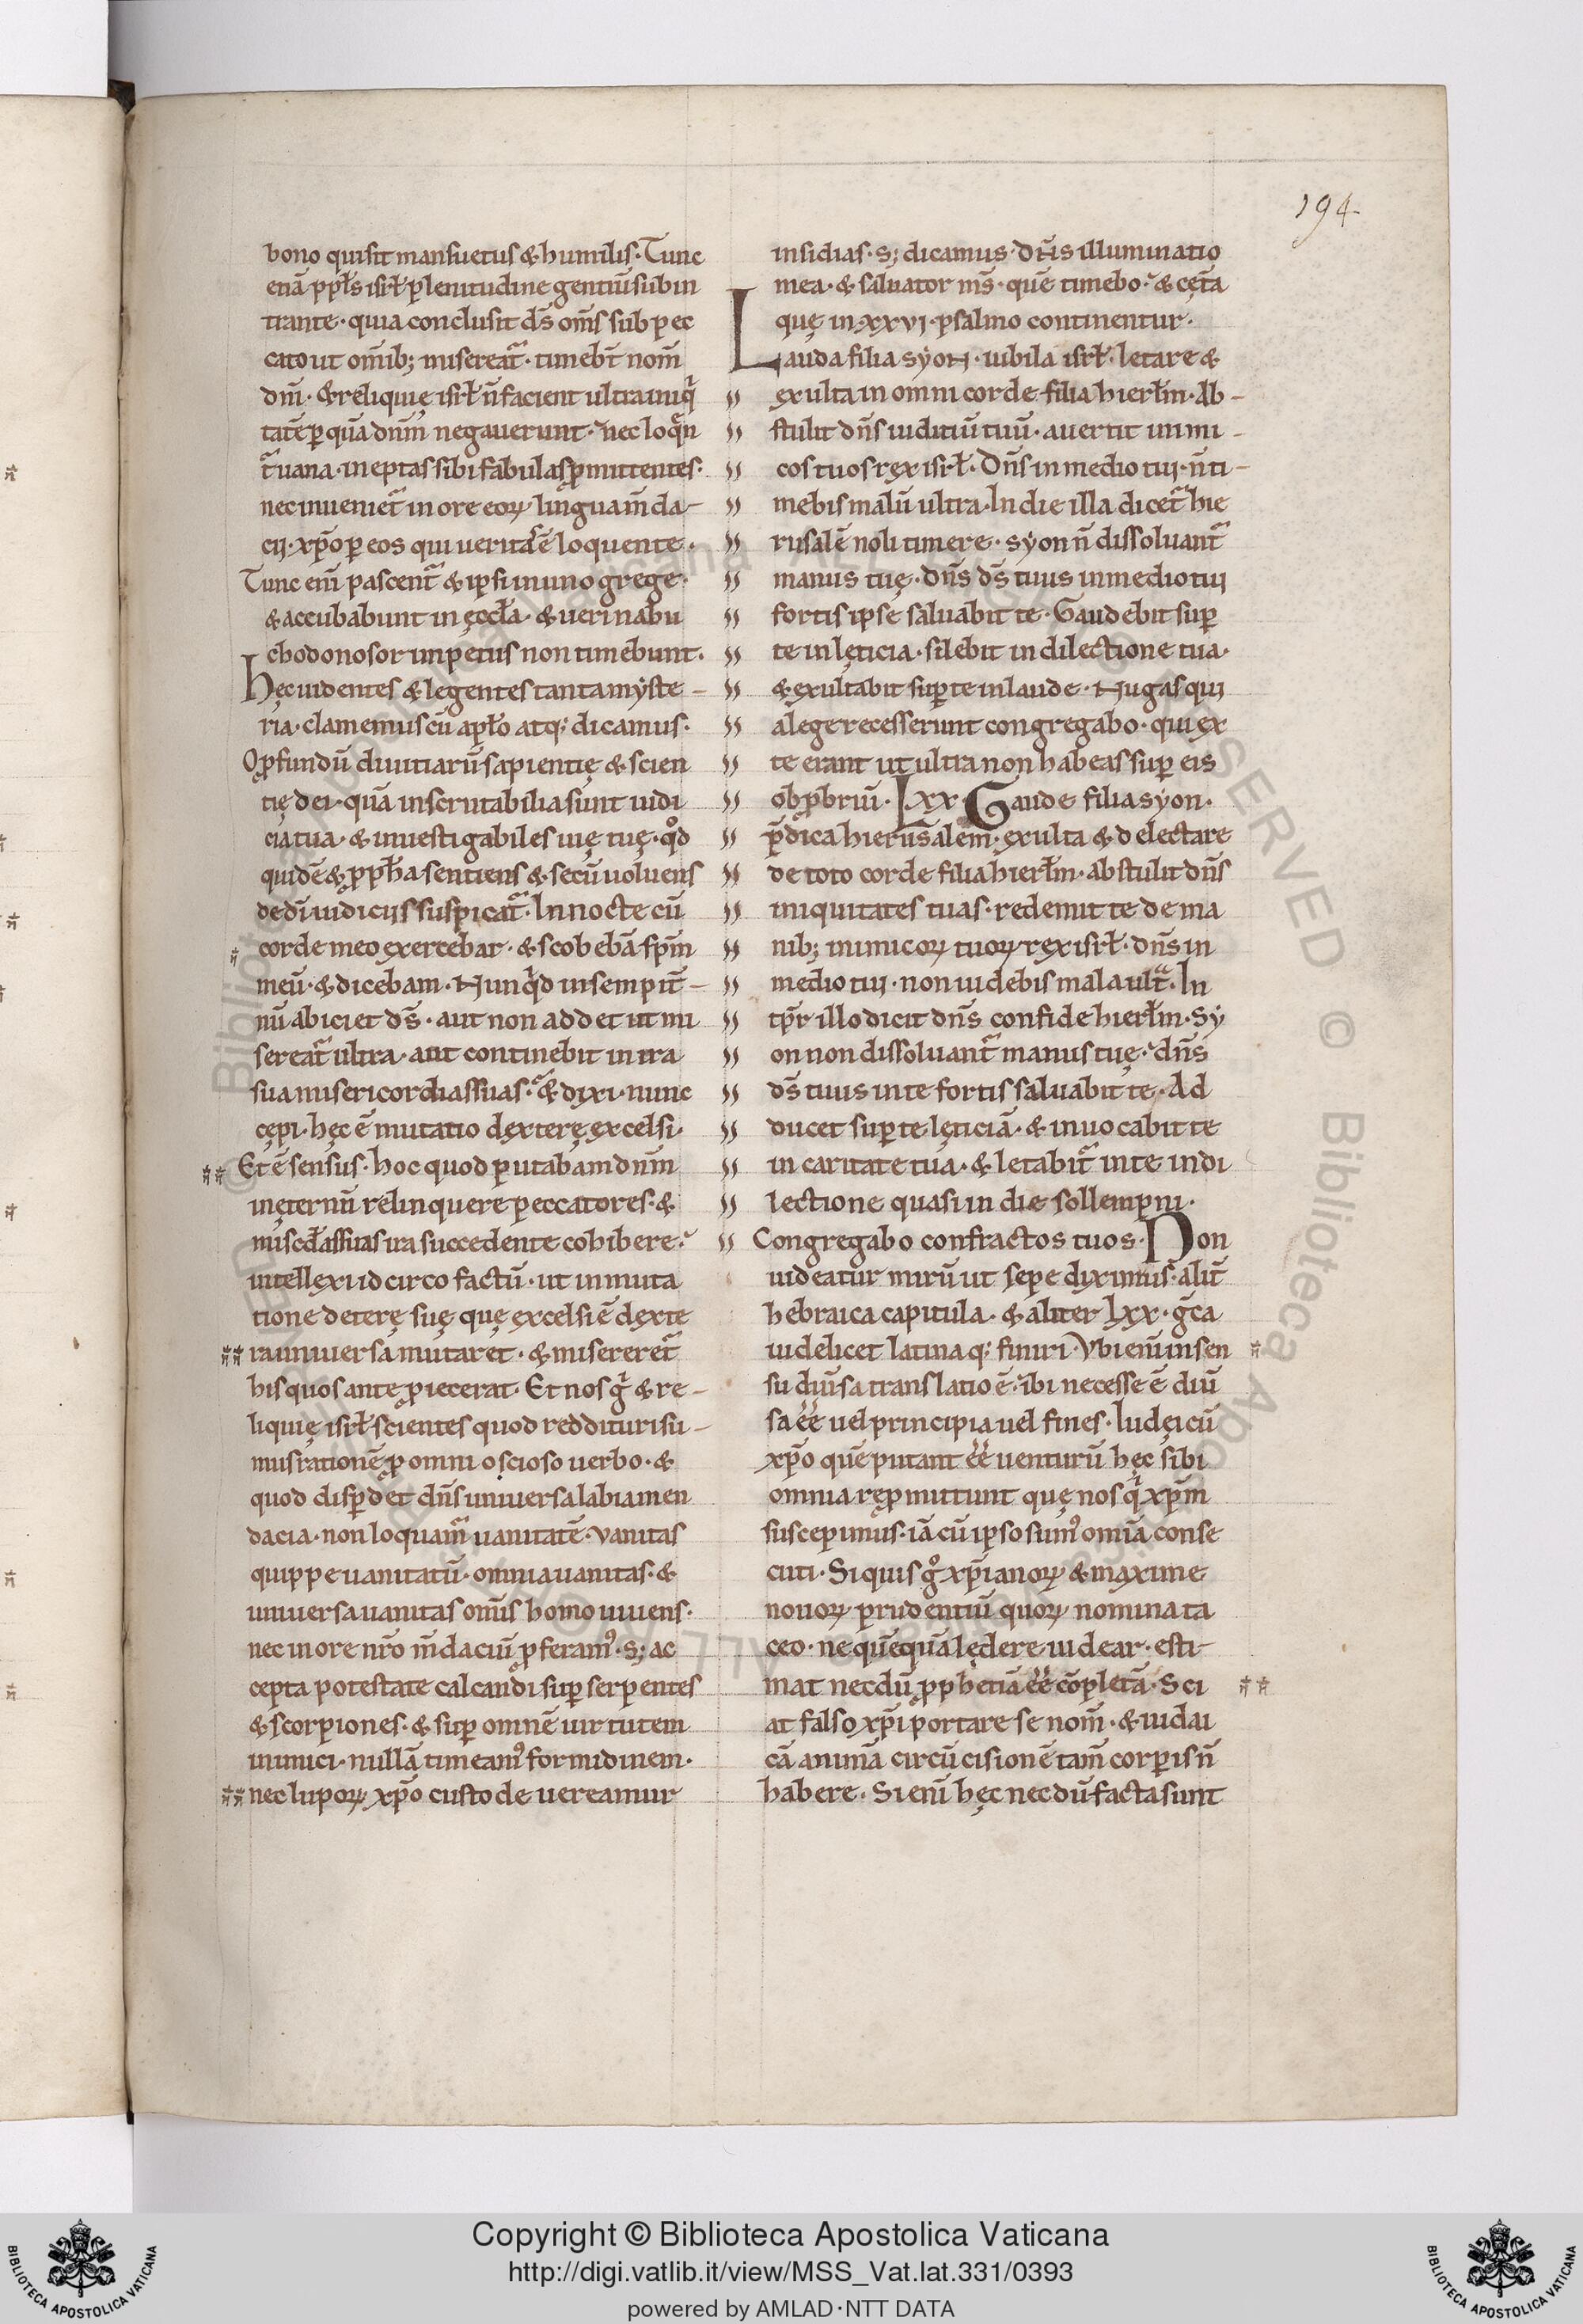 194
bono qui sit mansuetus & humilis. Tunc
etiā pp̄ls isrł plenitudine gentiū subin
trante. quia conclusit ds̄ om̄s sub pec
cato ut om̄ib; misereat̄. timebt̄ nom̄
dn̄i. & reliquię isrł n̄ facient ultra iniq
tatē p quā dnm̄ negauerunt. nec loq̄n
t̄ uana. ineptas sibi fabulas pmittentes.
nec inueniet̄ in ore eoꝝ lingua m̄da-
cij. xp̄o p eos qui ueritatē loquente.
Tunc eni̅ pascent̄ & ipsi in uno grege.
& accubabunt in ęccła. & ueri nabu
chodonosor impetus non timebunt.
Hęc uidentes & legentes tanta myste-
ria. clamemus cū apło atq; dicamus.
O pfundū diuitiarū sapientię & scien
tię dei. quā inscrutabilia sunt iudi
cia tua. & inuestigabiles uię tuę. qd
quidē & ppħa sentiens & secū uoluens
de dī iudiciis suspicat̄. In nocte cū
corde meo exercebar. & scobebā spm̄
meū. & dicebam. Nunqd in sempit̄-
nū abiciet ds̄. aut non addet ut mi
sereat̄ ultra. aut continebit in ira
sua misericordias suas. & dixi. nunc
cępi. hęc ē mutatio dexterę excelsi.
Et ē sensus. hoc quod putabam dnm̄
in ęternū relinquere peccatores. &
miscđas suas ira succedente cohibere.
intellexi idcirco factū. ut inmuta
tione deterę suę quę excelsi ē dexte
ra uniuersa mutaret. & misereret̄
his quos ante piecerat. Et nos g̊ & re-
liquię isrł scientes quod reddituri su-
mus rationē p omni oscioso uerbo. &
quod disp̱det dn̄s uniuersa labia men
dacia. non loquam̄ uanitatē. Vanitas
quippe uanitatū. omnia uanitas. &
uniuersa uanitas om̄is homo uiuens.
nec in ore nr̄o m̄daciū pferam⁹. s; ac
cepta potestate calcandi sup serpentes
& scorpiones. & sup omnē uirtutem
inimici. nullā timeam⁹ formidinem.
nec lupoꝝ xp̄o custode uereamur
insidias. s; dicamus. Dn̄s illuminatio
mea. & saluator ms̄. quē timebo. & cęt̄a
quę in xxvi. psalmo continentur.
Lauda filia syon. iubila isrł. letare &
exulta in omni corde filia hierłm. Ab-
stulit dn̄s iuditiū tuū. auertit inimi-
cos tuos rex isrł. Dn̄s in medio tui. n̄ ti-
mebis malū ultra. In die illa dicet̄ hie
rusalē noli timere. syon n̄ dissoluant̄
manus tuę. Dn̄s ds̄ tuus in medio tui
fortis ipse saluabit te. Gaudebit sup
te in lęticia. silebit in dilectione tua.
& exultabit sup te in laude. Nugas qui
a lege recesserunt congregabo. qui ex
te erant ut ultra non habeas sup eis
obpbriū. Lxx. Gaude filia syon.
p̄dica hierusalem. exulta & delectare
de toto corde filia hierłm. abstulit dn̄s
iniquitates tuas. redemit te de ma
nib; inimicoꝝ tuoꝝ rex isrł. dn̄s in
medio tui. non uidebis mala ult̄. In
tp̄r illo dicit dn̄s confide hierłm. Sy
on non dissoluant̄ manus tuę. dn̄s
ds̄ tuus in te fortis saluabit te. Ad
ducet sup te lęticiā. & inuocabit te
in caritate tua. & letabit̄ in te in di
lectione quasi in die sollempni.
Congregabo confractos tuos. Non
uideatur mirū ut sepe diximus. alit̄
hebraica capitula. & aliter lxx. gc̄a
uidelicet latinaq; finiri. Vbi eni̅ in sen
su diūsa translatio ē. ibi necesse ē diū
sa ēē uel principia uel fines. Iudęi cū
xp̄o quē putant ēē uenturū hęc sibi
omnia repmittunt quę nos q xpm̄
suscepimus. iā cū ipso sum⁹ omīa conse
cuti. Siquis g̊ xp̄ianoꝝ & maxime
nouoꝝ prudentiū quoꝝ nomina ta
ceo. ne quēquā lędere uidear. esti-
mat necdū pphetiā ēē cōpletā. Sci
at falso xp̄i portare se nom̄. & iudai
cā animā circūcisionē tam̄ corpis n̄
habere. Si eni̅ hęc necdū facta sunt
© Biblioteca Apostolica Vaticana ALL RIGHTS RESERVED
Copyright © Biblioteca Apostolica Vaticana
http://digi.vatlib.it/view/MSS_Vat.lat.331/0393
powered by AMLAD·NTT DATA
BIBLIOTECA APOSTOLICA VATICANA
BIBLIOTECA APOSTOLICA VATICANA